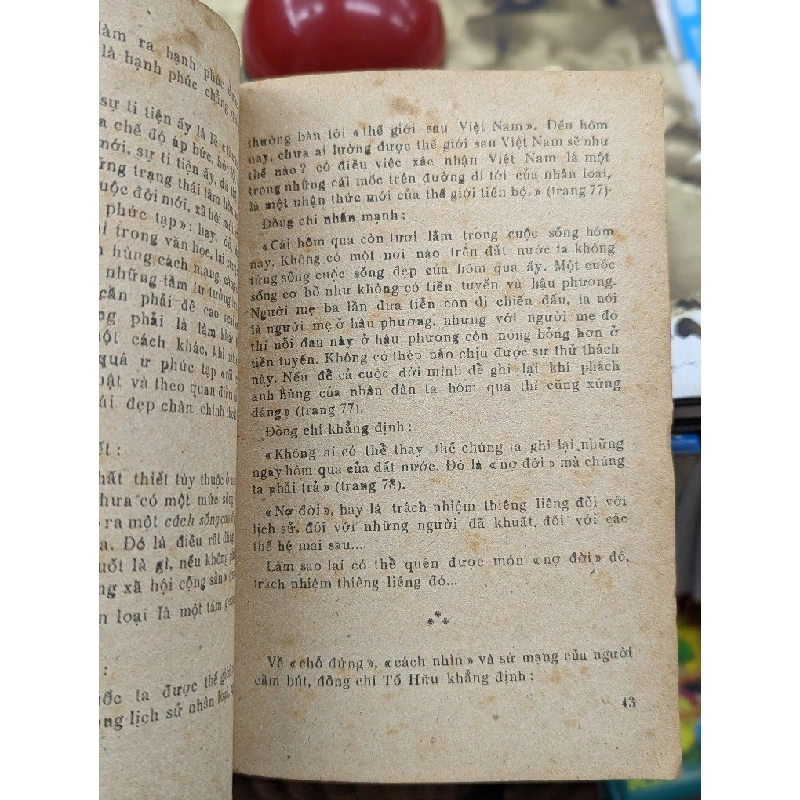 làm ra hạnh phúc
là hạnh phúc chẳng
sự ti tiện ấy là lẽ
chế độ áp bức,
mới, sự ti tiện ấy, đã
trạng thái tâm
cuộc đời mới, rã
phức tạp»; hay,
trong văn học, lại
hùng cách mạng
những tâm tư tưởng
cần phải đề cao
phải là làm
một cách khác, khi
quá ư phức tạp
và theo quan điểm
đẹp chân chính
hất thiết tùy thuộc ở
hưa có một mức
ra một cách sống
Đó là điều rất
là gì, nếu không
xã hội cộng sản»
loại là một tấm
:
ta được thế giới
lịch sử nhân loại,
thường bàn tới «thế giới sau Việt Nam». Đến hôm
nay, chưa ai lường được thế giới sau Việt Nam sẽ như
thế nào? có điều việc xác nhận Việt Nam là một
trong những cái mốc trên đường đi tới của nhân loại,
là một nhận thức mới của thế giới tiến bộ.» (trang 77).
Đồng chí nhấn mạnh:
«Cái hôm qua còn tươi lắm trong cuộc sống hôm
nay. Không có một nơi nào trên đất nước ta không
từng sống cuộc sống đẹp của hôm qua ấy. Một cuộc
sống cơ hồ như không có tiền tuyến và hậu phương.
Người mẹ ba lần đưa tiễn con đi chiến đấu, ta nói
là người mẹ ở hậu phương, nhưng với người mẹ đó
thì nỗi đau này ở hậu phương còn nóng bỏng hơn ở
tiền tuyến. Không có thép nào chịu được sự thử thách
này. Nếu để cả cuộc đời mình để ghi lại khí phách
anh hùng của nhân dân ta hôm qua thì cũng xứng
đáng» (trang 77).
Đồng chí khẳng định:
«Không ai có thể thay thế chúng ta ghi lại những
ngày hôm qua của đất nước. Đó là «nợ đời» mà chúng
ta phải trả» (trang 78).
«Nợ đời», hay là trách nhiệm thiêng liêng đối với
lịch sử, đối với những người đã khuất, đối với các
thế hệ mai sau...
Làm sao lại có thể quên được món «nợ đời» đó,
trách nhiệm thiêng liêng đó...
Về «chỗ đứng», «cách nhìn» và sứ mạng của người
cầm bút, đồng chí Tố Hữu khẳng định:
43